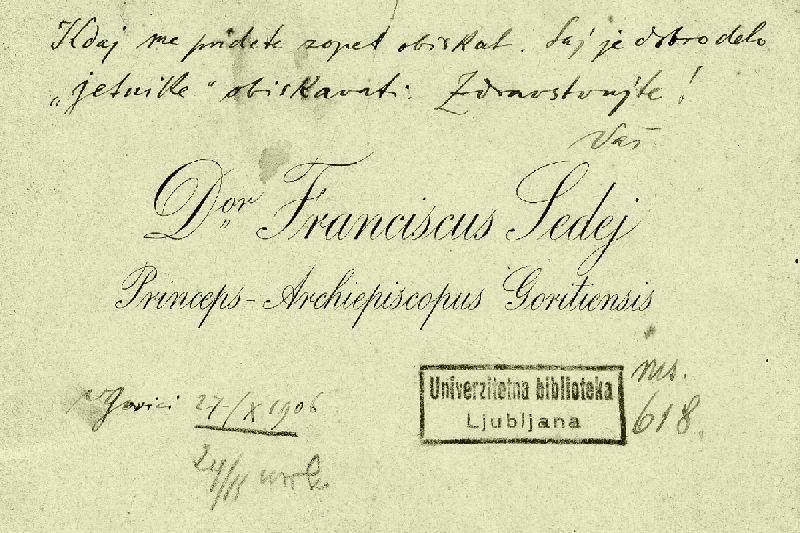 Kdaj me pridete zopet obiskat. Saj je dobro delo
„jetnike“ obiskavati. Zdravstvujte!
Vaš
Dor Franciscus Sedej
Princeps-Archiepiscopus Goritiensis
V Gorici 27/X 1906
Univerzitetna biblioteka
Ljubljana
ms.
618.
24/11